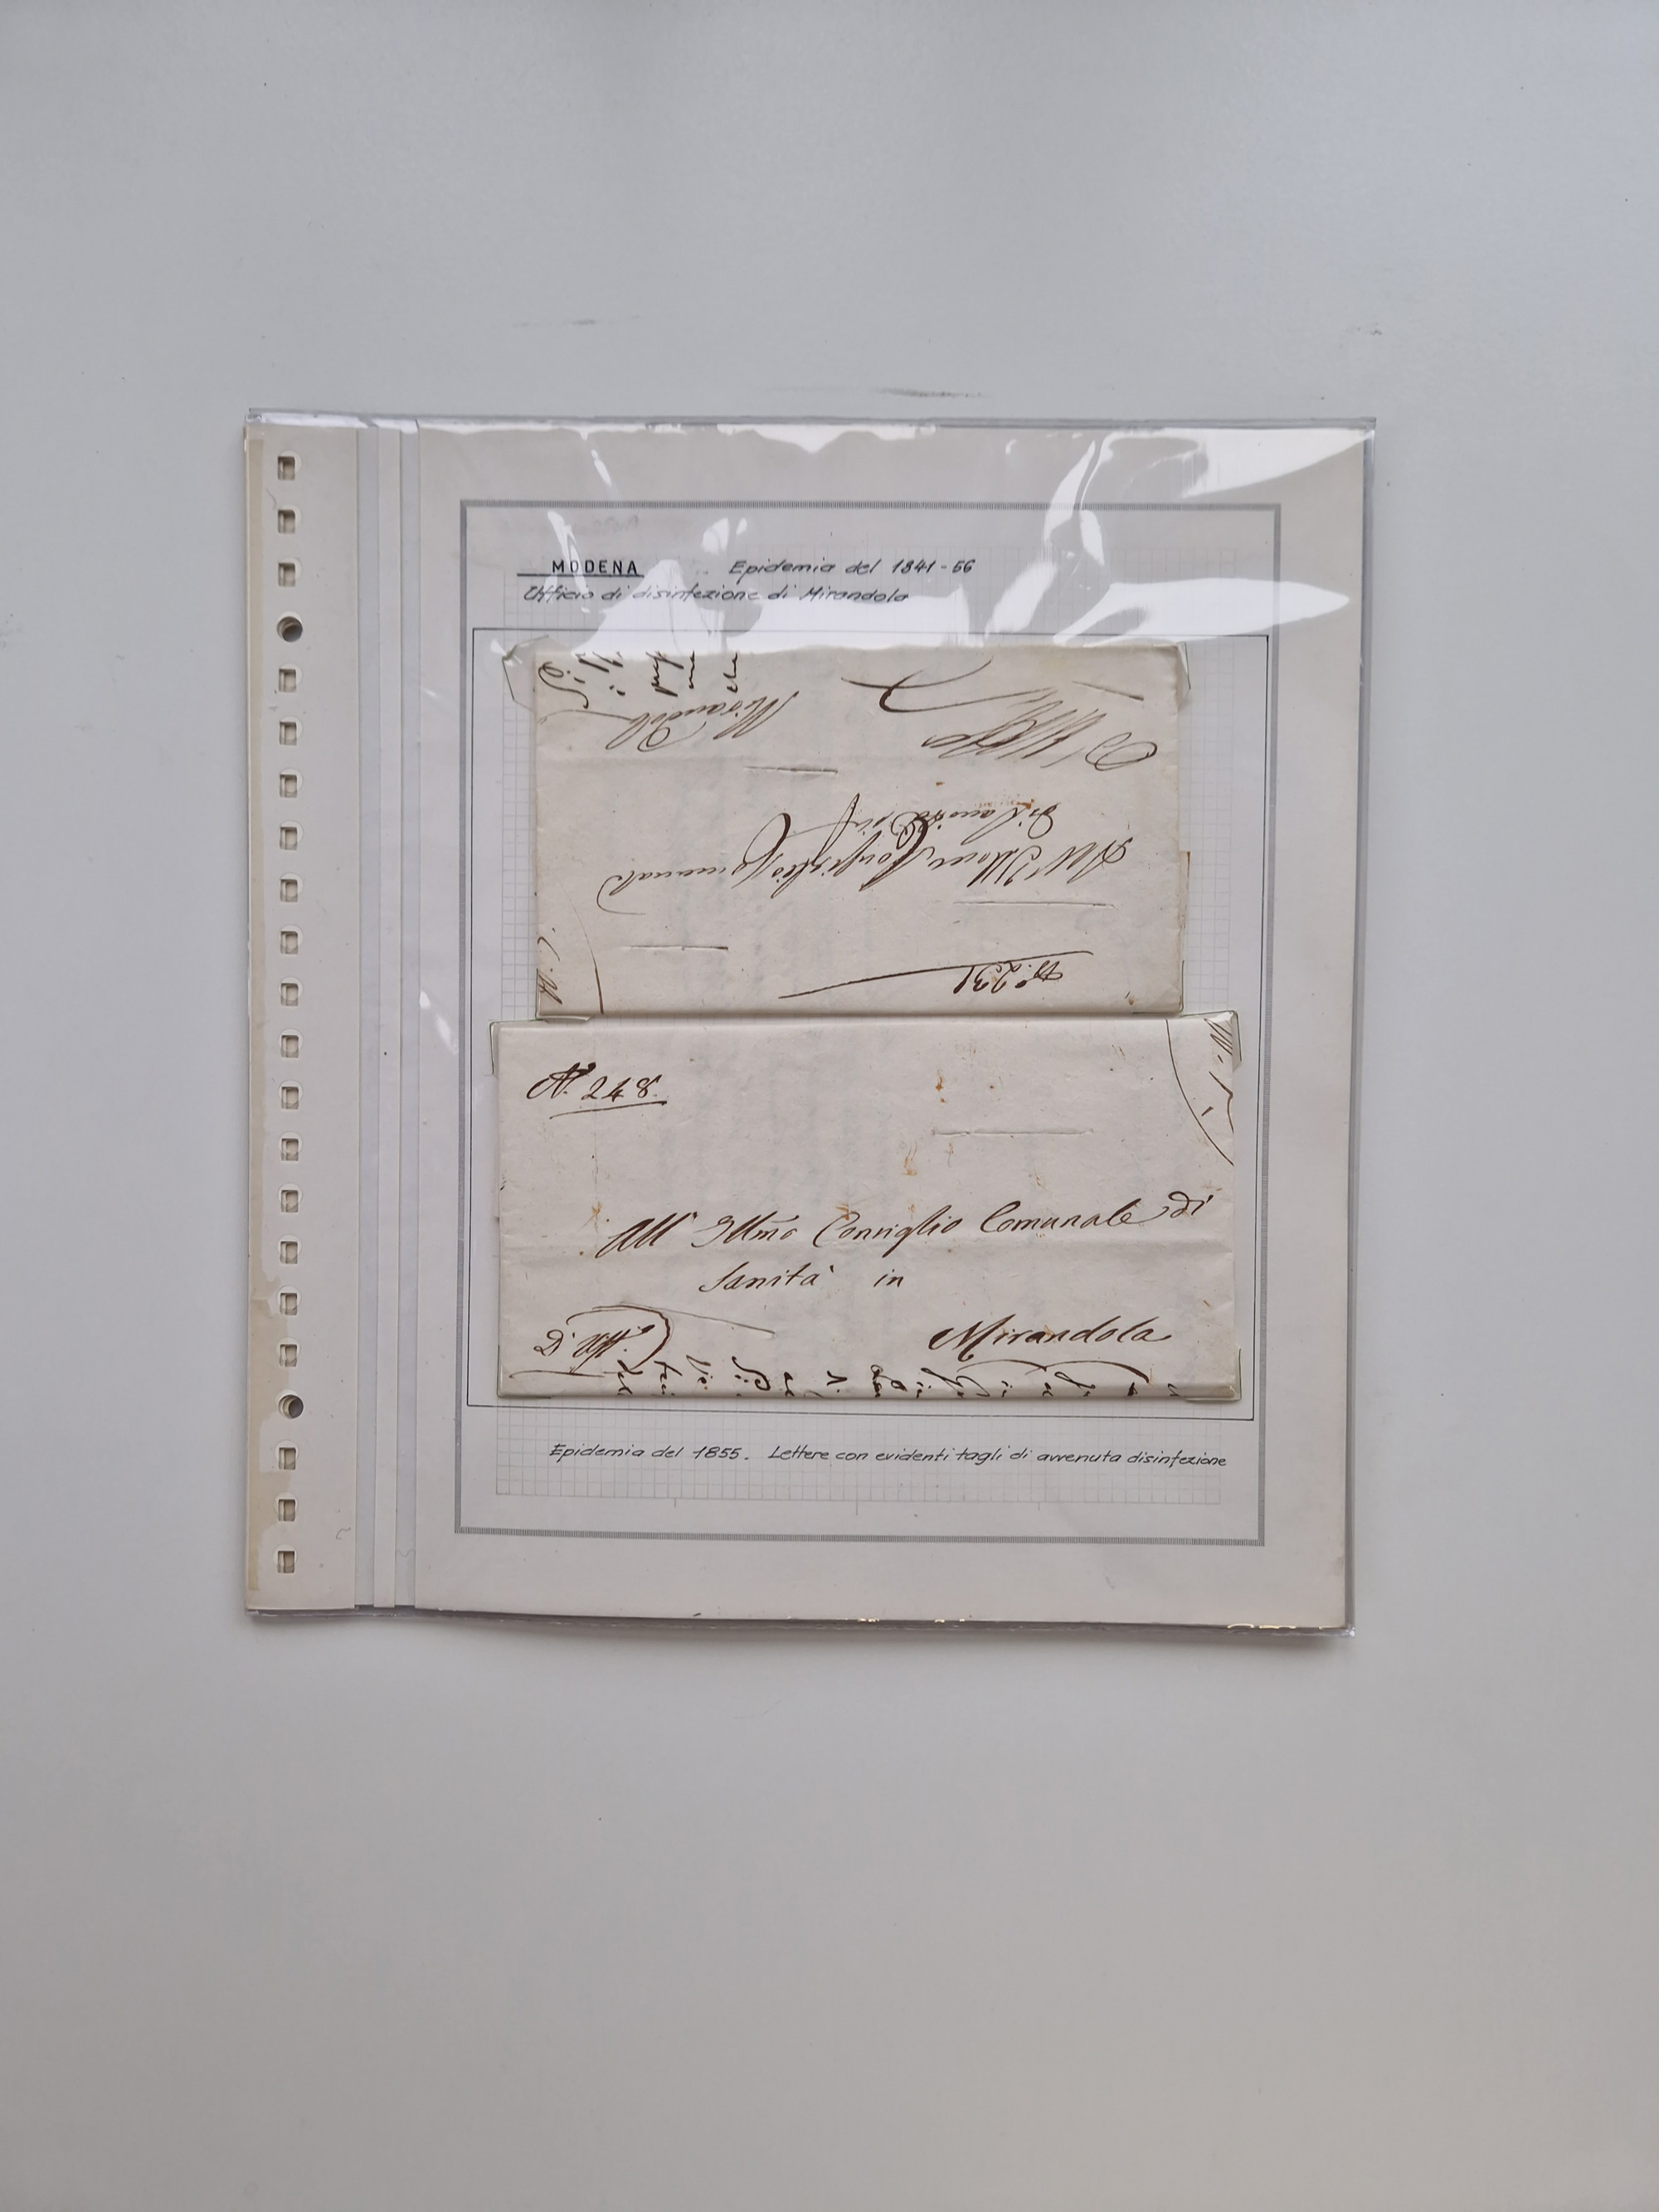 MODENA Epidemia del 1841-56
Ufficio di disinfezione di Mirandola
N.° 231
All' Illmo Consiglio Comunale
di Sanità in
D'Uffo Mirandola
N.° 248.
All' Illmo Consiglio Comunale di
Sanità in
Mirandola
D'Uff.°
Epidemia del 1855. Lettere con evidenti tagli di avvenuta disinfezione